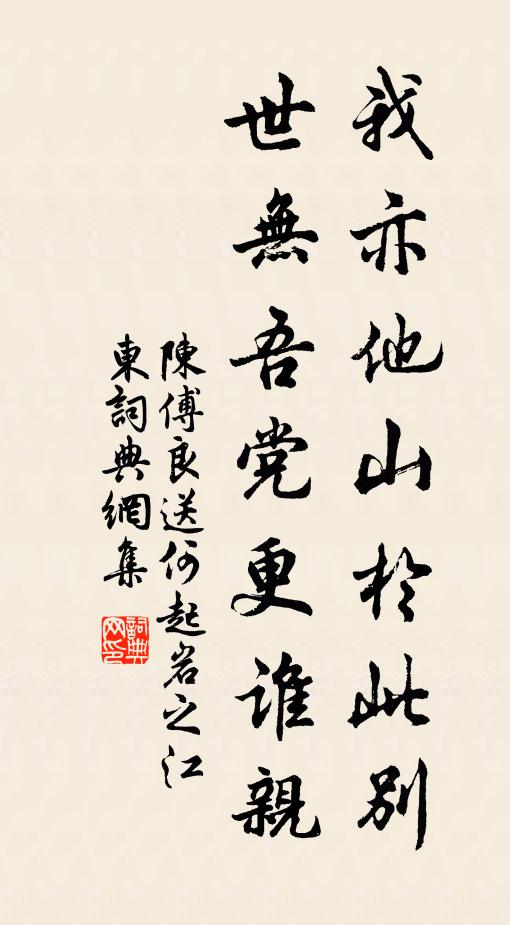 我亦他山於此別
世無吾党更誰親
陳傅良送何起岩之江
東詞典網集
詞典网印